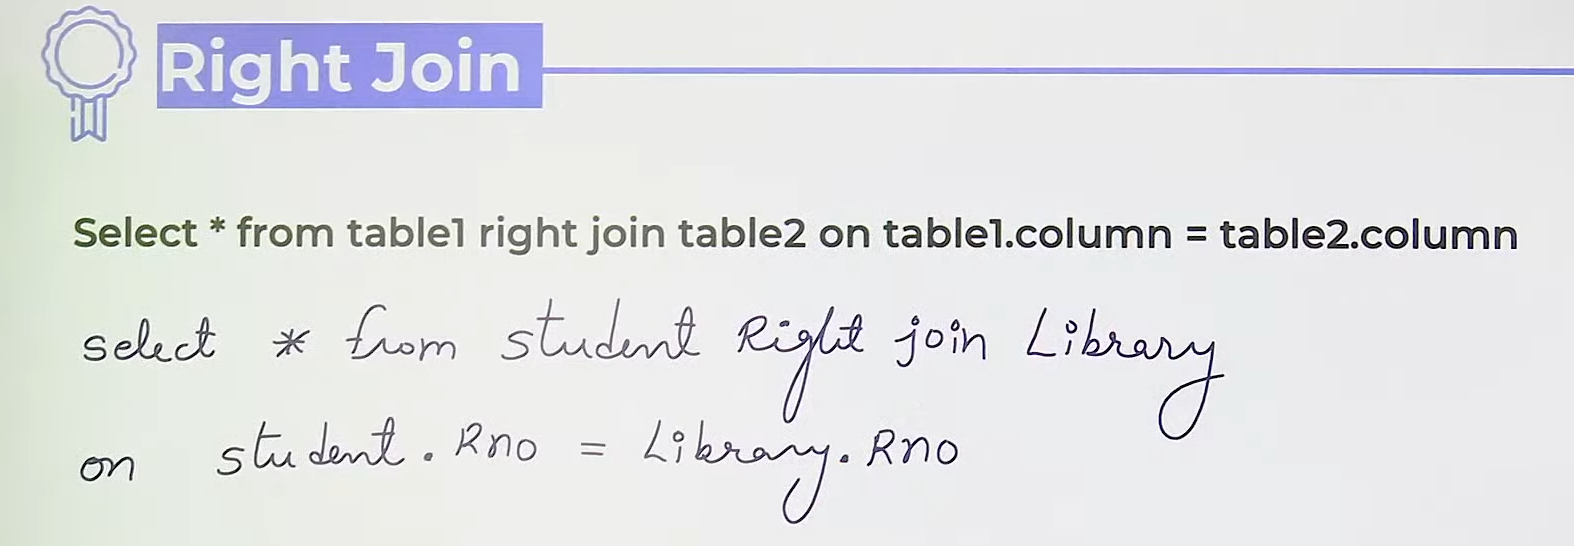 Right Join
Select * from table1 right join table2 on table1.column = table2.column
select * from student Right join Library
on student. Rno = Library. Rno